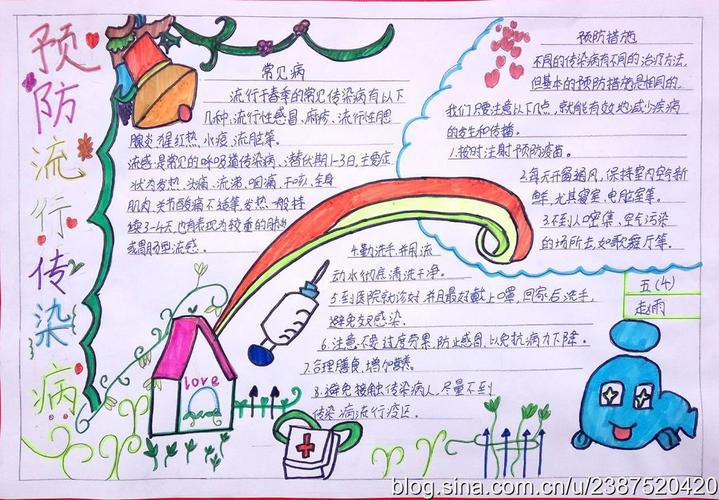 预防流行传染病
常见病
流行于春季的常见传染病有以下
几种.流行性感冒、麻疹、流行性腮
腺炎.猩红热、水痘、流脑等.
流感是常见的呼吸道传染病、潜伏期1-3日,主要症
状为发热、头痛、流涕、咽痛、干咳,全身
肌肉、关节酸痛不适等,发热一般持
续3-4天,也有表现为较重的肺炎
或胃肠型流感.
预防措施
不同的传染病有不同的治疗方法,
但基本的预防措施是相同的,
我们只要注意以下几点,就能有效地减少疾病
的发生和传播.
1.按时注射预防疫苗.
2.每天开窗通风,保持室内空气新
鲜,尤其寝室、电脑室等.
3.不到人口密集、空气污染
的场所去,如歌舞厅等.
4.勤洗手,并用流
动水彻底清洗干净.
5.到医院就诊时,并且最好戴上口罩,回家后洗手,
避免交叉感染.
6.注意不要过度劳累,防止感冒,以免抗病力下降.
7.合理膳食,增加营养.
8.避免接触传染病人,尽量不到
传染病流行疫区.
五(4)
赵雨
love
blog.sina.com.cn/u/2387520420